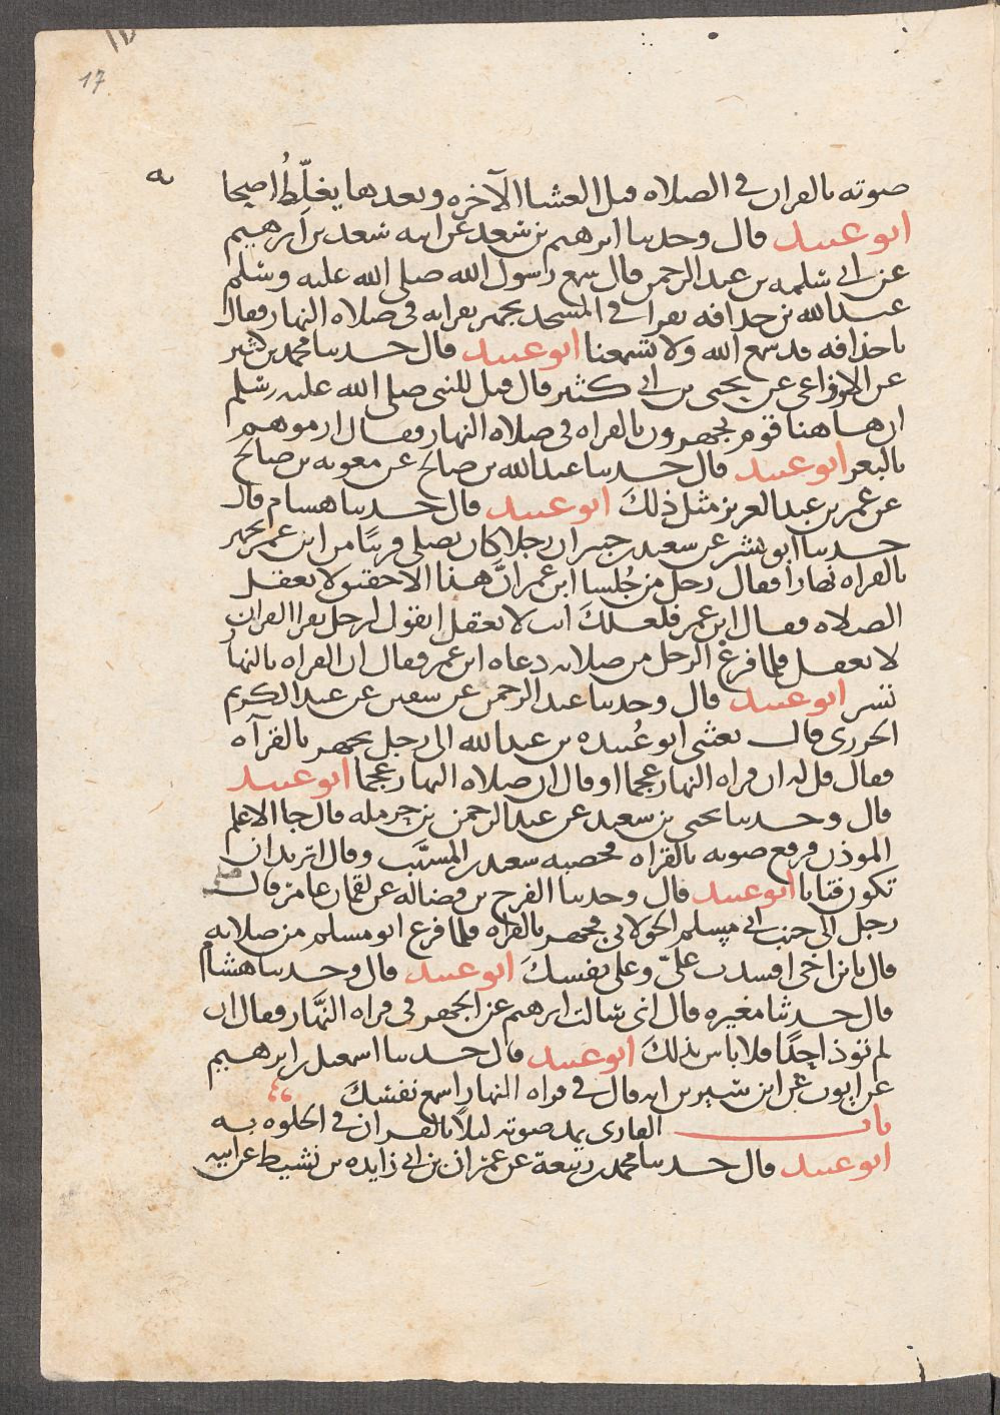 17
صوته بالقران في الصلاه قبل العشا الآخره وبعدها يغلّطُ اصحابه
ابو عبيد قال وحدثنا ابرهيم بن سعد عن ابيه سعد بن ابرهيم
عن ابي سلمه بن عبد الرحمن قال سمع رسول الله صلى الله عليه وسلم
عبد الله بن حذافه يقرا في المسجد يجهر بقراته في صلاه النهار فقال
يا حذافه قد سمع الله ولا تسمعنا ابو عبيد قال حدثنا محمد بن كثير
عن الاوزاعي عن يحيى بن ابي كثير قال قيل للنبي صلى الله عليه وسلم
ان هاهنا قوم يجهرون بالقراه في صلاه النهار فقال ارموهم
بالبعر ابو عبيد قال حدثنا عبد الله بن صالح عن معويه بن صالح
عن عمر بن عبد العزيز مثل ذلكَ ابو عبيد قال حدثنا هشام قال
حدثنا ابو بشر عن سعيد بن جبير ان رجلا كان يصلي قريبًا من ابن عمر يجهر
بالقراه نهارا فقال رجل من جُلسا ابن عمر انَّ هذا الاحمق لا يعقل
الصلاه فقال ابن عمر فلعلكَ انت لا تعقل اتقول لرجل يقرا القران
لا يعقل فلما فرغ الرجل من صلاته دعاه ابن عمر فقال ان القراه بالنهار
تسر ابو عبيد قال وحدثنا عبد الرحمن عن سفين عن عبد الكريم
الجزري قال بعثني ابو عُبيده بن عبد الله الى رجل يجهر بالقرآه
فقال قل له ان قراه النهار عجما او قال ان صلاه النهار عجما ابو عبيد
قال وحدثنا يحيى بن سعيد عن عبد الرحمن بن حرمله قال جا الاعلم
الموذن فرفع صوته بالقراه فحصبه سعيد بن المسيّب وقال اتريد ان
تكون فتانا ابو عبيد قال وحدثنا الفرج بن فضاله عن لقمان عامر قال صلى
رجل الى جنب ابي مسلم الخولاني فجهر بالقراه فلما فرغ ابو مسلم من صلاته
قال يا بن اخي افسدت عليّ وعلى نفسكَ ابو عبيد قال وحدثنا هشام
قال حدثنا مغيره قال اني سالت ابرهيم عن الجهر في قراه النَّهار فقال ان
لم توذ احدًا فلا باس بذلكَ ابو عبيد قال حدثنا اسمعيل بن ابرهيم
عن ايوب عن ابن سيرين انه قال في قراه النهار اسمع نفسكَ
باب القارى يمد صوته ليلًا بالقران في الخلوه به
ابو عبيد قال حدثنا محمد بن ربيعة عن عمران بن ابي زايده بن نشيط عن ابيه